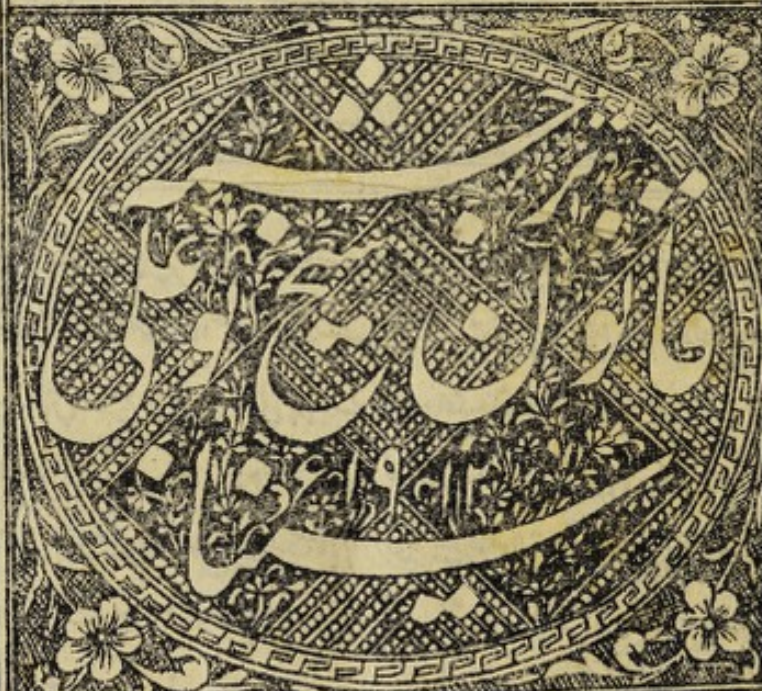 ترجمه
قانون شیخ بو علی
سینا ۱۹۱۲ء